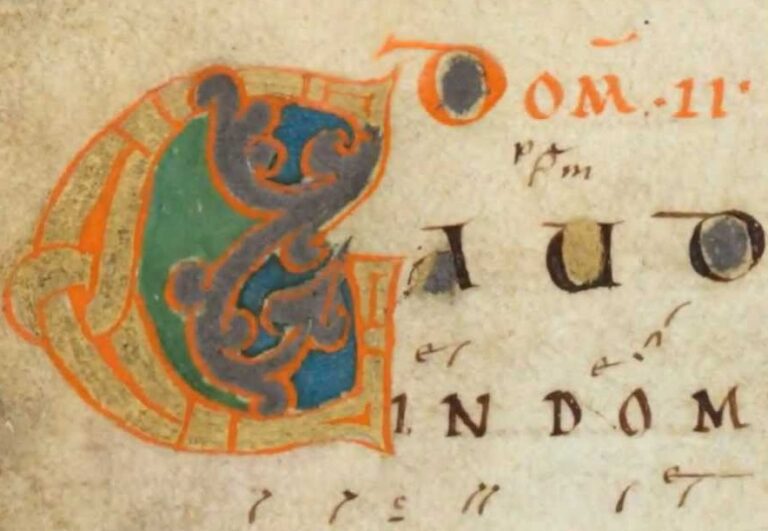 DOM̄·II·
GAUD
INDOM